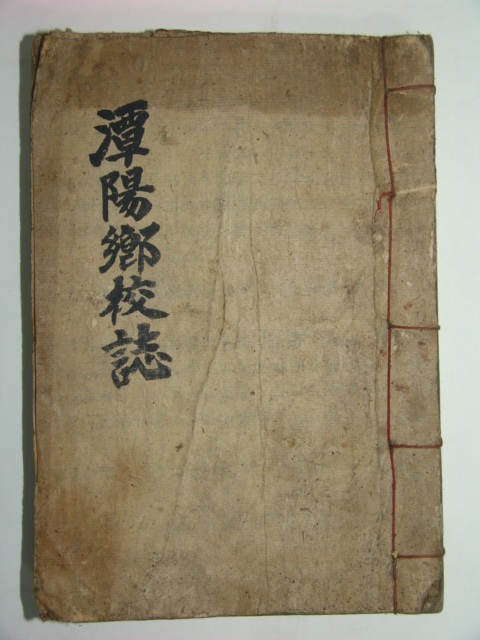 潭陽鄉校誌